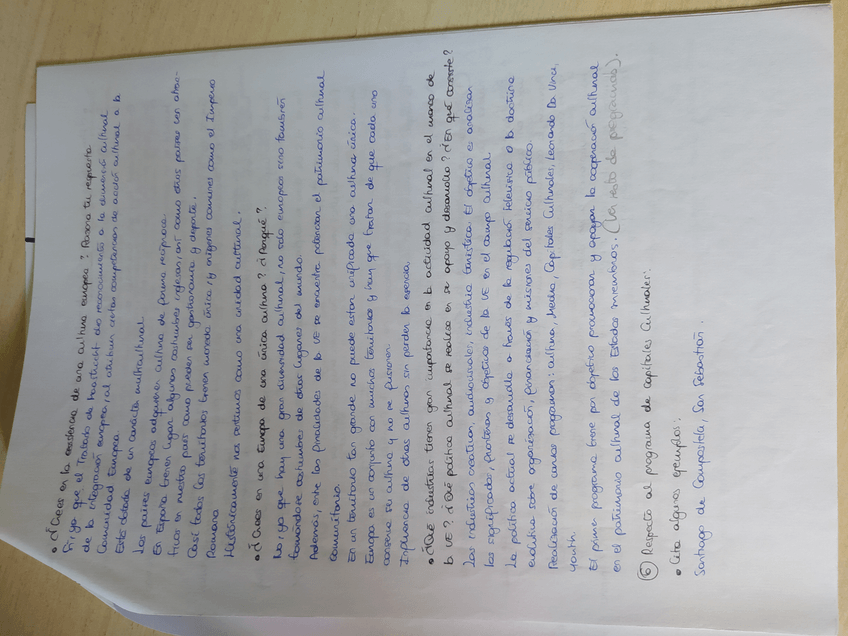 • ¿Crees en la existencia de una cultura europea? Razona tu respuesta.
Sí, ya que el Tratado de Maastricht dio reconocimiento a la dimensión cultural
de la integración europea, al atribuir ciertas competencias de acción cultural a la
Comunidad Europea.
Está dotada de un carácter multicultural.
Los países europeos adquieren cultura de forma recíproca.
En España tienen lugar algunas costumbres inglesas, así como otros países son atrac-
tivos en nuestro país como pueden ser, gastronomía y deporte.
Casi todos los territorios tienen moneda única, y orígenes comunes como el Imperio
Romano
Históricamente nos sentimos como una unidad cultural.
• ¿Crees en una Europa de una única cultura? ¿Porqué?
No, ya que hay una gran diversidad cultural, no solo europeos sino también
fomándose costumbres de otros lugares del mundo.
Además, entre las finalidades de la UE se encuentra potenciar el patrimonio cultural
comunitario.
En un territorio tan grande no puede estar unificada una cultura única.
Europa es un conjunto con muchos territorios y hay que tratar de que cada uno
conserve su cultura y no se fusionen.
Influencia de otras culturas sin perder la esencia.
• ¿Qué industrias tienen gran importancia en la actividad cultural en el marco de
la UE? ¿Qué política cultural se realiza en su apoyo y desarrollo? ¿En qué consiste?
Las industrias creativas, audiovisuales, industria turística. El objetivo es analizar
los significados, fronteras y objetivos de la UE en el campo cultural.
La política actual se desarrolla a través de la regulación televisiva o la doctrina
evolutiva sobre organización, financiación y misiones del servicio público.
Realización de varios programas: cultura, Media, Capitales Culturales, Leonardo Da Vinci,
youth.
El primer programa tiene por objetivo promocionar y apoyar la cooperación cultural
en el patrimonio cultural de los Estados miembros. (Ver resto de programas).
6 Respecto al programa de Capitales Culturales:
• Cita algunos ejemplos:
Santiago de Compostela, San Sebastián.